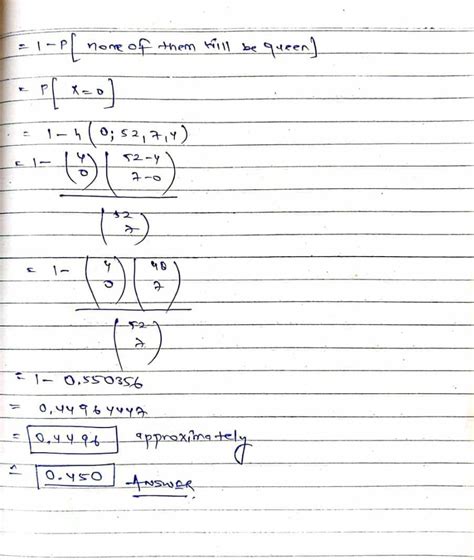 = 1 - P[ none of them will be queen]
= P[ x=0 ]
= 1 - h (0; 52, 7, 4)
= 1 - (4 0) (52-4 7-0)
(52 7)
= 1 - (4 0) (48 7)
(52 7)
= 1 - 0.550356
= 0.44964447
= 0.4496 approximately
= 0.450 ANSWER